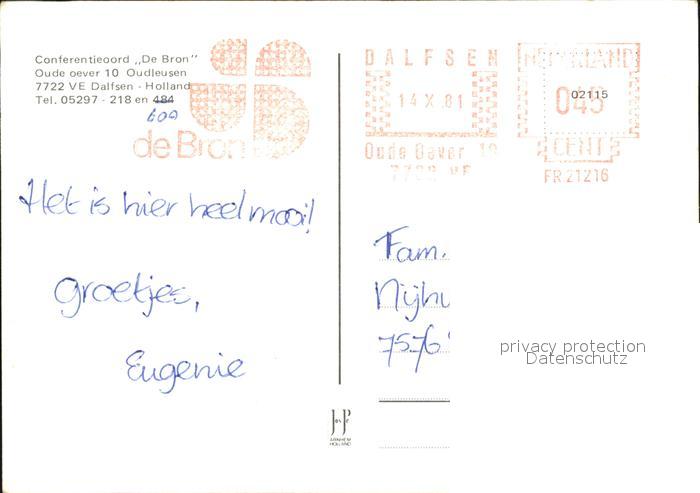 Conferentieoord ,,De Bron"
Oude oever 10 Oudleusen
7722 VE Dalfsen - Holland
Tel. 05297 - 218 en 484
600
de Bron
Het is hier heel mooi!
groetjes,
Eugenie
DALFSEN
14 X 81
Oude Oever 10
7722 VE
NEDERLAND
02115
045
CENT
FR 21216
Fam.
7576
privacy protection
Datenschutz
JosPé
ARNHEM
HOLLAND